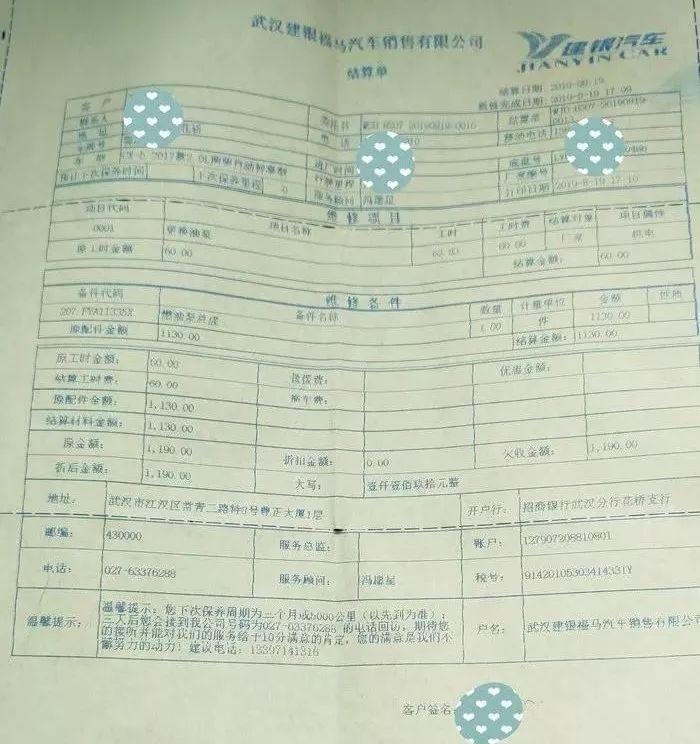 武汉建银福马汽车销售有限公司
建银汽车
JIANYIN CAR
结算单
结算日期: 2019-08-19
完成日期: 2019-8-19 17:09
客户
联系人 委托书 结算单
地址 电话 移动电话
车牌号 进厂时间 底盘号
车型 行驶里程 发动机号
预计下次保养时间 下次保养里程 0 服务顾问 冯 星 打印日期 2019-8-19 17:10
维修项目
项目代码 项目名称 工时 工时费 结算对象 项目属性
0001 更换油泵 60.00 厂家 机电
原工时金额 60.00 结算金额: 60.00
维修备件
备件代码 备件名称 数量 计量单位 金额 性质
燃油泵总成 1.00 件 1130.00
原配件金额 1130.00 结算金额: 1130.00
原工时金额: 60.00 优惠金额:
结算工时费: 60.00 拖车费:
原配件金额: 1,130.00
结算材料金额: 1,130.00
原金额: 1,190.00 折扣金额: 0.00 欠收金额: 1,190.00
折后金额: 1,190.00 大写: 壹仟壹佰玖拾元整
地址: 武汉市江汉区常青二路特3号豊正大厦1层 开户行: 招商银行武汉分行花桥支行
邮编: 430000 服务总监: 账户: 127907208810801
电话: 027-63376288 服务顾问: 冯 星 税号: 91420105303414331Y
温馨提示: 温馨提示: 您下次保养周期为三个月或5000公里 (以先到为准);
三天后您会接到我公司号码为027-63376288 的电话回访, 期待您
的接听并能对我们的服务给予10分满意的肯定, 您的满意是我们不
懈努力的动力! 建议电话: 13397141316
户名: 武汉建银福马汽车销售有限公司
客户签名: